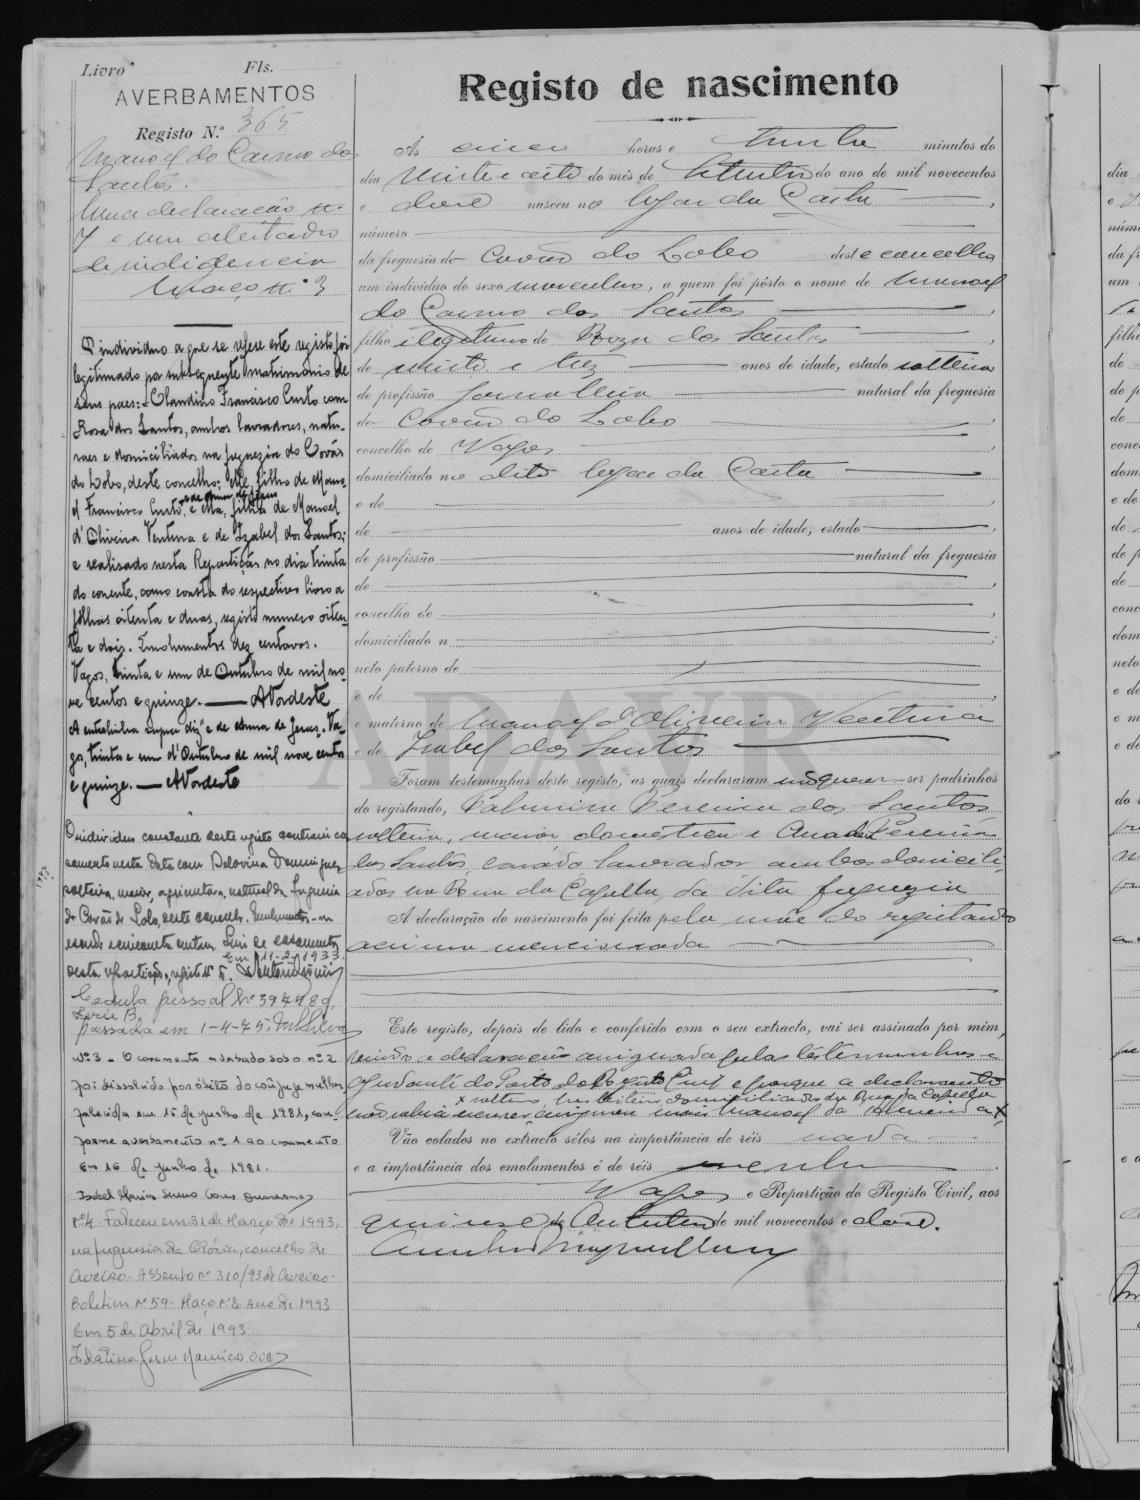 Livro Fls.
AVERBAMENTOS
Registo N.º 365
Manoel do Carmo dos
Santos.
Uma declaração n.º
7 e um atestado
de indigencia
Maço n.º 3
O individuo a que se refere este registo foi
legitimado por subsequente matrimonio de
seus paes: Olandino Francisco Curto com
Rosa dos Santos, ambos lavradores, natu-
raes e domiciliados na freguezia do Covão
do Lobo, deste concelho; elle, filho de Mano-
el Francisco Curto, e de Anna de Jesus e ella, filha de Manoel
d'Oliveira Ventura e de Izabel dos Santos;
e realisado nesta Repartição no dia trinta
do corrente, como consta do respectivo livro a
folhas oitenta e duas, registo numero oiten-
ta e dois. Emolumentos dez centavos.
Vagos, trinta e um de Outubro de mil no-
ve centos e quinze. — A Nordeste
A entrelinha supra diz "e de Anna de Jesus". Va-
gos, trinta e um d'Outubro de mil nove centos
e quinze. — A Nordeste
O individuo constante deste registo contraiu ca-
samento nesta data com Dominguez,
solteira, maior, agricultora, natural da freguezia
do Covão do Lobo, deste concelho. Emolumentos
escudo e cincoenta centavos. Livro de casamentos
Em 11-2-1933
desta repartição, registo n.º 5.
Cedula pessoal Nº 397489
Serie B.
passada em 1-4-75.
Nº 3 - O casamento averbado sob o nº 2
foi dissolvido por óbito do cônjuge mulher,
falecida em 15 de junho de 1981, con-
forme averbamento nº 1 ao casamento
Em 16 de junho de 1981.
Isabel Maria
Nº 4. Faleceu em 31 de Março de 1993,
na freguesia da Glória, concelho de
Aveiro. Assento nº 310/93 de Aveiro-
Boletim Nº 59. Maço Nº 3. Ano de 1993
Em 5 de Abril de 1993.
Registo de nascimento
Ás cinco horas e trinta minutos do
dia vinte e oito do mês de Setembro do ano de mil novecentos
e doze nasceu no logar da
número
da freguesia de Covão do Lobo deste concelho
um indivíduo do sexo masculino, a quem foi pôsto o nome de Manoel
do Carmo dos Santos
filho ilegitimo de Roza dos Santos
de vinte e trez anos de idade, estado solteira
de profissão jornaleira natural da freguesia
de Covão do Lobo
concelho de Vagos
domiciliado no dito logar da
e de
de anos de idade, estado
de profissão natural da freguesia
de
concelho de
domiciliado n
neto paterno de
e de
e materno de Manoel d'Oliveira Ventura
e de Izabel dos Santos
Foram testemunhas deste registo, as quais declararam não querer ser padrinhos
do registando, Pereira dos Santos
solteira, maior, domestica e Pereira
dos Santos, casado, lavrador ambos domicili-
ados na Rua da Capella, da dita freguezia
A declaração do nascimento foi feita pela mãe do registando
acima mencionada
Este registo, depois de lido e conferido com o seu extracto, vai ser assinado por mim,
sendo a declaração assignada pelas testemunhas e
ajudante do Posto do Registo Civil e porque a declarante
x solteiro, domiciliado da Rua da Capella
não sabia escrever assignou mais Manoel da x
Vão colados no extracto sêlos na importância de réis nada
e a importância dos emolumentos é de réis
Vagos e Repartição do Registo Civil, aos
quinze de Outubro de mil novecentos e doze.
ADAVR